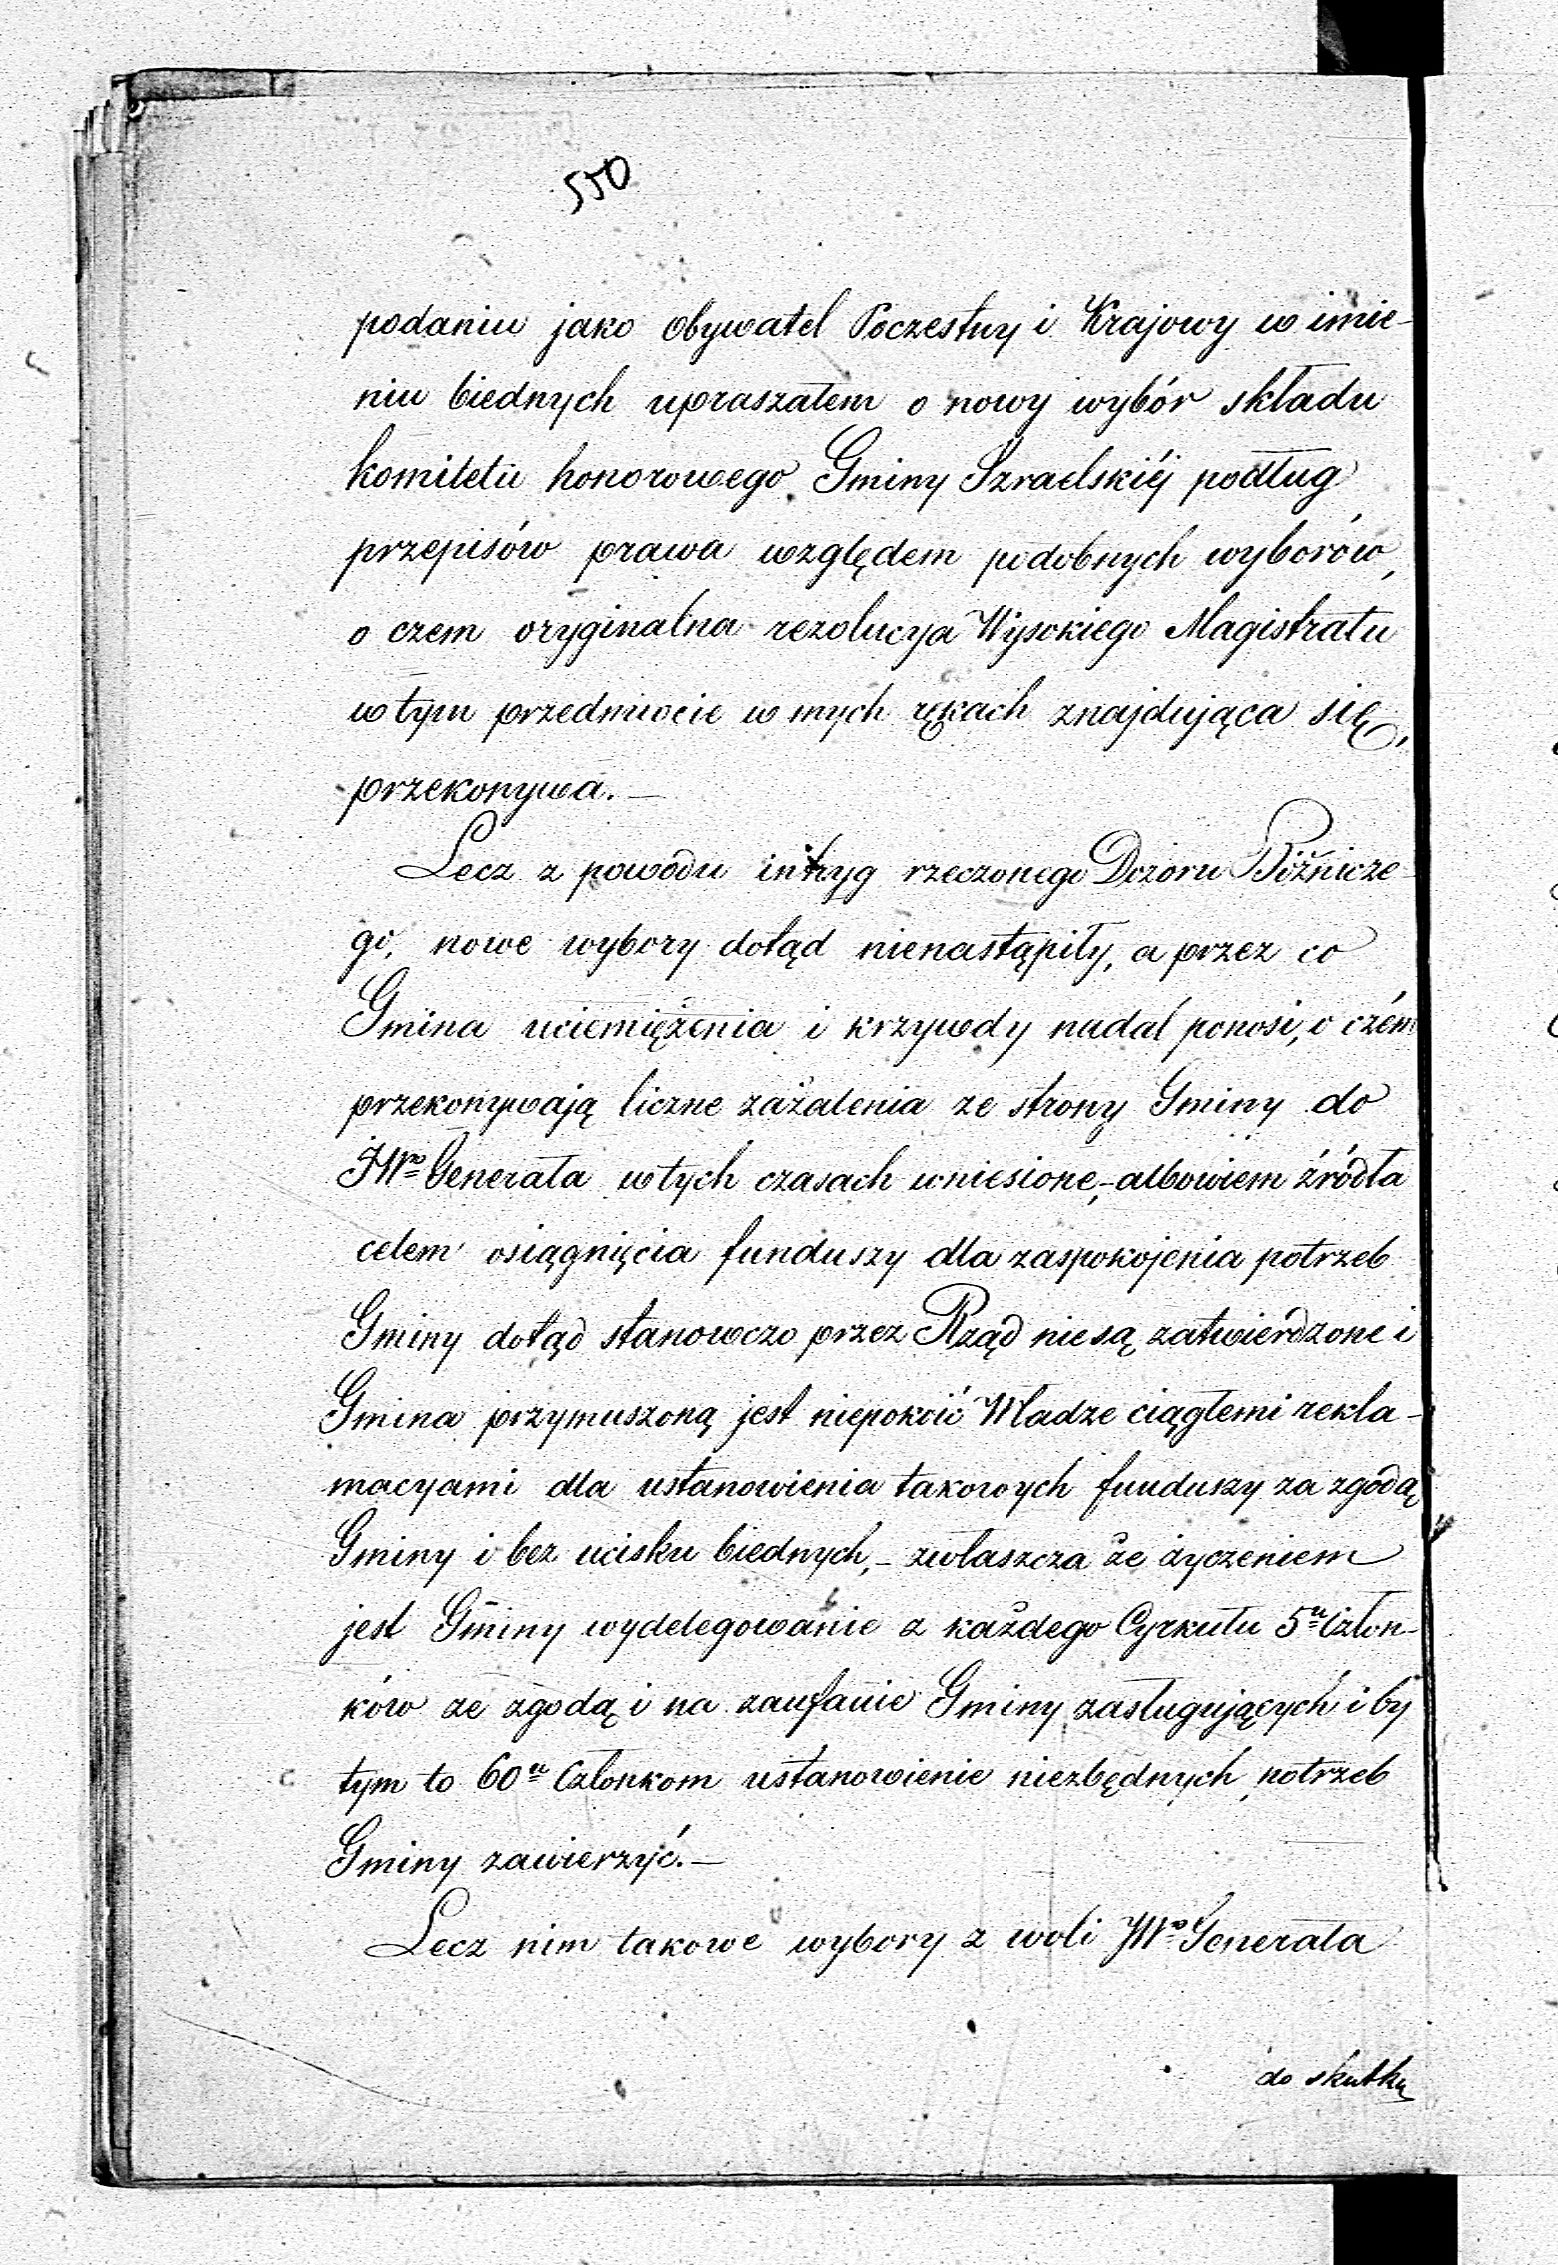 550
podaniu jako obywatel Poczestny i Krajowy w imie-
niu biednych upraszałem o nowy wybór składu
komitetu honorowego Gminy Izraelskiéj podług
przepisów prawa względem podobnych wyborów,
o czem oryginalna rezolucya Wysokiego Magistratu
w tym przedmiocie w mych rękach znajdująca się,
przekonywa.—
Lecz z powodu intryg rzeczonego Dozoru Bóżnicze-
go, nowe wybory dotąd nienastąpiły, a przez co
Gmina uciemiężenia i krzywdy nadal ponosi, o czém
przekonywają liczne zażalenia ze strony Gminy do
JWo Generała w tych czasach wniesione,- albowiem źródła
celem osiągnięcia funduszy dla zaspokojenia potrzeb
Gminy dotąd stanowczo przez Rząd nie są zatwierdzone i
Gmina przymuszoną jest niepokoić Władze ciągłemi rekla-
macyami dla ustanowienia takowych funduszy za zgodą
Gminy i bez ucisku biednych,- zwłaszcza że życzeniem
jest Gminy wydelegowanie z każdego Cyrkułu 5u Człon-
ków ze zgodą i na zaufanie Gminy zasługujących i by
tym to 60u Członkom ustanowienie niezbędnych potrzeb
Gminy zawierzyć.—
Lecz nim takowe wybory z woli JWo Generała
do skutku